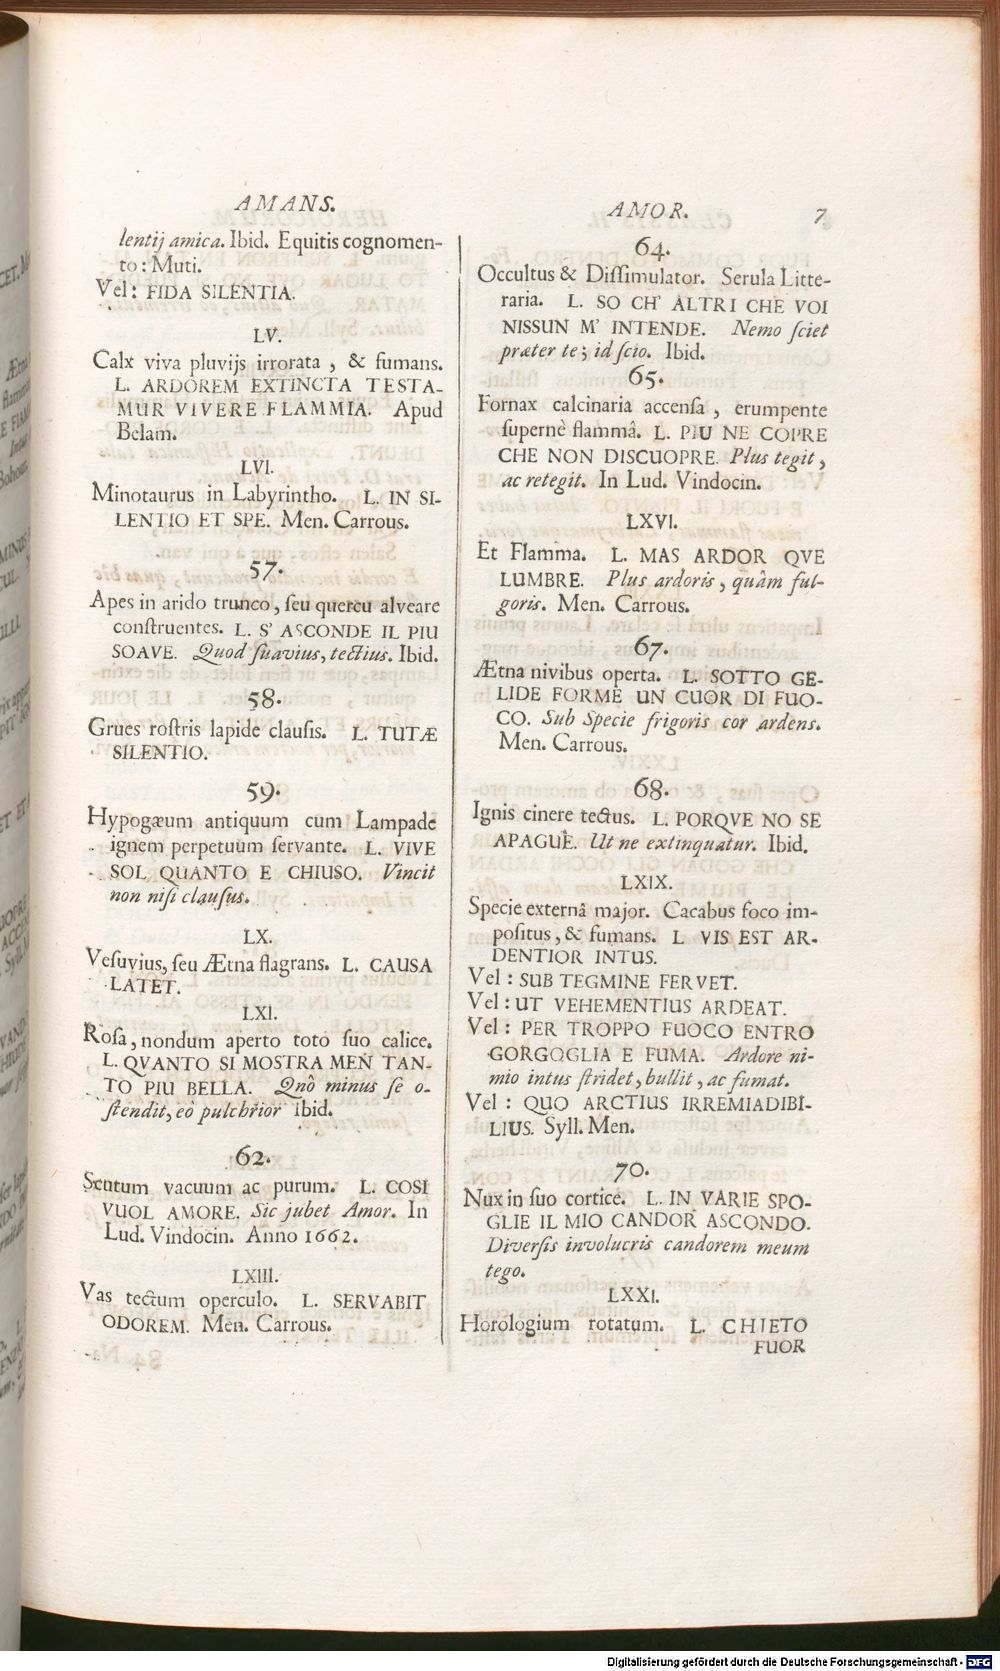 AMANS.
lentij amica. Ibid. Equitis cognomen-
to: Muti.
Vel: FIDA SILENTIA.
LV.
Calx viva pluvijs irrorata, & fumans.
L. ARDOREM EXTINCTA TESTA-
MUR VIVERE FLAMMIA. Apud
Belam.
LVI.
Minotaurus in Labyrintho. L. IN SI-
LENTIO ET SPE. Men. Carrous.
57.
Apes in arido trunco, ſeu quercu alveare
conſtruentes. L. S' ASCONDE IL PIU
SOAVE. Quod ſuavius, tectius. Ibid.
58.
Grues roſtris lapide clauſis. L. TUTÆ
SILENTIO.
59.
Hypogæum antiquum cum Lampade
ignem perpetuum ſervante. L. VIVE
SOL QUANTO E CHIUSO. Vincit
non niſi clauſus.
LX.
Veſuvius, ſeu Ætna flagrans. L. CAUSA
LATET.
LXI.
Roſa, nondum aperto toto ſuo calice.
L. QVANTO SI MOSTRA MEN TAN-
TO PIU BELLA. Qnò minus ſe o-
ſtendit, eò pulchrior Ibid.
62.
Scutum vacuum ac purum. L. COSI
VUOL AMORE. Sic jubet Amor. In
Lud. Vindocin. Anno 1662.
LXIII.
Vas tectum operculo. L. SERVABIT
ODOREM. Men. Carrous.
AMOR. 7
64.
Occultus & Diſſimulator. Serula Litte-
raria. L. SO CH' ALTRI CHE VOI
NISSUN M' INTENDE. Nemo ſciet
præter te; id ſcio. Ibid.
65.
Fornax calcinaria accenſa, erumpente
ſupernè flammâ. L. PIU NE COPRE
CHE NON DISCUOPRE. Plus tegit,
ac retegit. In Lud. Vindocin.
LXVI.
Et Flamma. L. MAS ARDOR QVE
LUMBRE. Plus ardoris, quâm ful-
goris. Men. Carrous.
67.
Ætna nivibus operta. L. SOTTO GE-
LIDE FORME UN CUOR DI FUO-
CO. Sub Specie frigoris cor ardens.
Men. Carrous.
68.
Ignis cinere tectus. L. PORQVE NO SE
APAGUE. Ut ne extinquatur. Ibid.
LXIX.
Specie externâ major. Cacabus foco im-
poſitus, & fumans. L VIS EST AR-
DENTIOR INTUS.
Vel: SUB TEGMINE FERVET.
Vel: UT VEHEMENTIUS ARDEAT.
Vel: PER TROPPO FUOCO ENTRO
GORGOGLIA E FUMA. Ardore ni-
mio intus ſtridet, bullit, ac fumat.
Vel: QUO ARCTIUS IRREMIADIBI-
LIUS. Syll. Men.
70.
Nux in ſuo cortice. L. IN VARIE SPO-
GLIE IL MIO CANDOR ASCONDO.
Diverſis involucris candorem meum
tego.
LXXI.
Horologium rotatum. L. CHIETO
FUOR
Digitalisierung gefördert durch die Deutsche Forschungsgemeinschaft - DFG